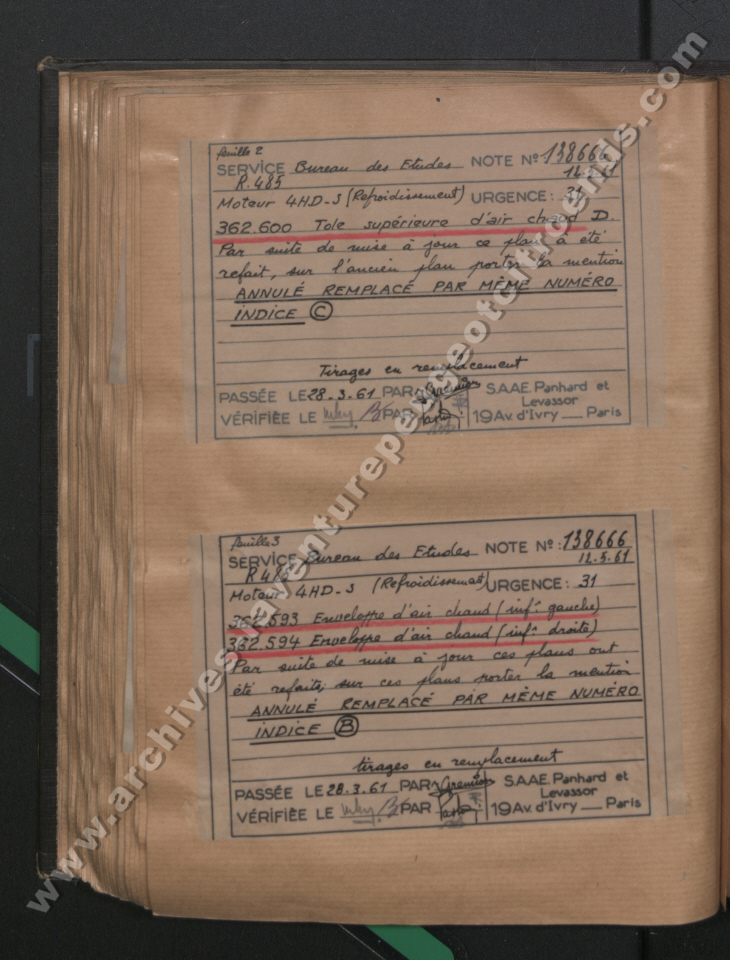 feuille 2
SERVICE Bureau des Etudes NOTE Nº 138666
R.485
Moteur 4HD-S (Refroidissement) URGENCE: 31
362.600 Tole supérieure d'air chaud D.
Par suite de mise à jour ce plan à été
refait, sur l'ancien plan porter la mention
ANNULÉ REMPLACÉ PAR MÊME NUMÉRO
INDICE C
Tirages en remplacement
PASSÉE LE 28.3.61 PAR Gremion S.A.A.E. Panhard et
Levassor
VÉRIFIÉE LE PAR 19 Av. d'Ivry __ Paris
feuille 3
SERVICE Bureau des Etudes NOTE Nº: 138666
R 485 12.5.61
Moteur 4HD-S (Refroidissement) URGENCE: 31
362.593 Enveloppe d'air chaud (inf: gauche)
362.594 Enveloppe d'air chaud (inf: droite)
Par suite de mise à jour ces plans ont
été refaits, sur ces plans porter la mention
ANNULÉ REMPLACÉ PAR MÊME NUMÉRO
INDICE B
tirages en remplacement
PASSÉE LE 28.3.61 PAR Gremion S.A.A.E. Panhard et
Levassor
VÉRIFIÉE LE PAR 19 Av. d'Ivry __ Paris
www.archives.laventurepeugeotcitroends.com